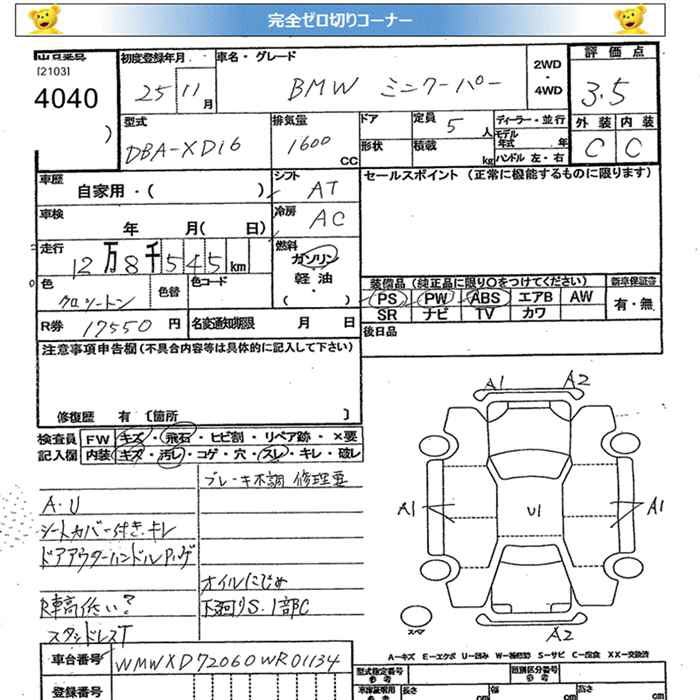 完全ゼロ切りコーナー
[2103]
4040
初度登録年月 25 11月
車名・グレード BMW ミニクーパー
2WD・4WD
評価点 3.5
外装 C 内装 C
型式 DBA-XD16
排気量 1600 CC
ドア
形状
定員 5 人
積載 kg
ディーラー・並行
モデル年式 年
ハンドル 左・右
車歴 自家用・( )
シフト AT
セールスポイント (正常に機能するものに限ります)
車検 年 月( 日)
冷房 AC
走行 12万8千545km
燃料 ガソリン・軽油・( )
色
色替
色コード
装備品 (純正品に限り○をつけてください)
新車保証書
PS PW ABS エアB AW
有・無
SR ナビ TV カワ
R券 17550 円
名変通知期限 月 日
後日品
注意事項申告欄 (不具合内容等は具体的に記入して下さい)
修復歴 有 [箇所 ]
検査員 FW キズ・飛石・ヒビ割・リペア跡・×要
記入欄 内装 キズ・汚レ・コゲ・穴・スレ・キレ・破レ
ブレーキ不調 修理要
A・U
シートカバー付き.キレ
ドアアウターハンドル
オイルにじみ
R車高低い?
下廻りS.1部C
スタッドレスT
A1 A2
A1 U1 A1
A2
スペア
A-キズ E-エクボ U-凹み W-補修跡 S-サビ C-腐食 XX-交換済
車台番号 WMWXD72060WR01134
登録番号
型式指定番号
類別区分番号
参考
長さ cm
幅 cm
高さ cm